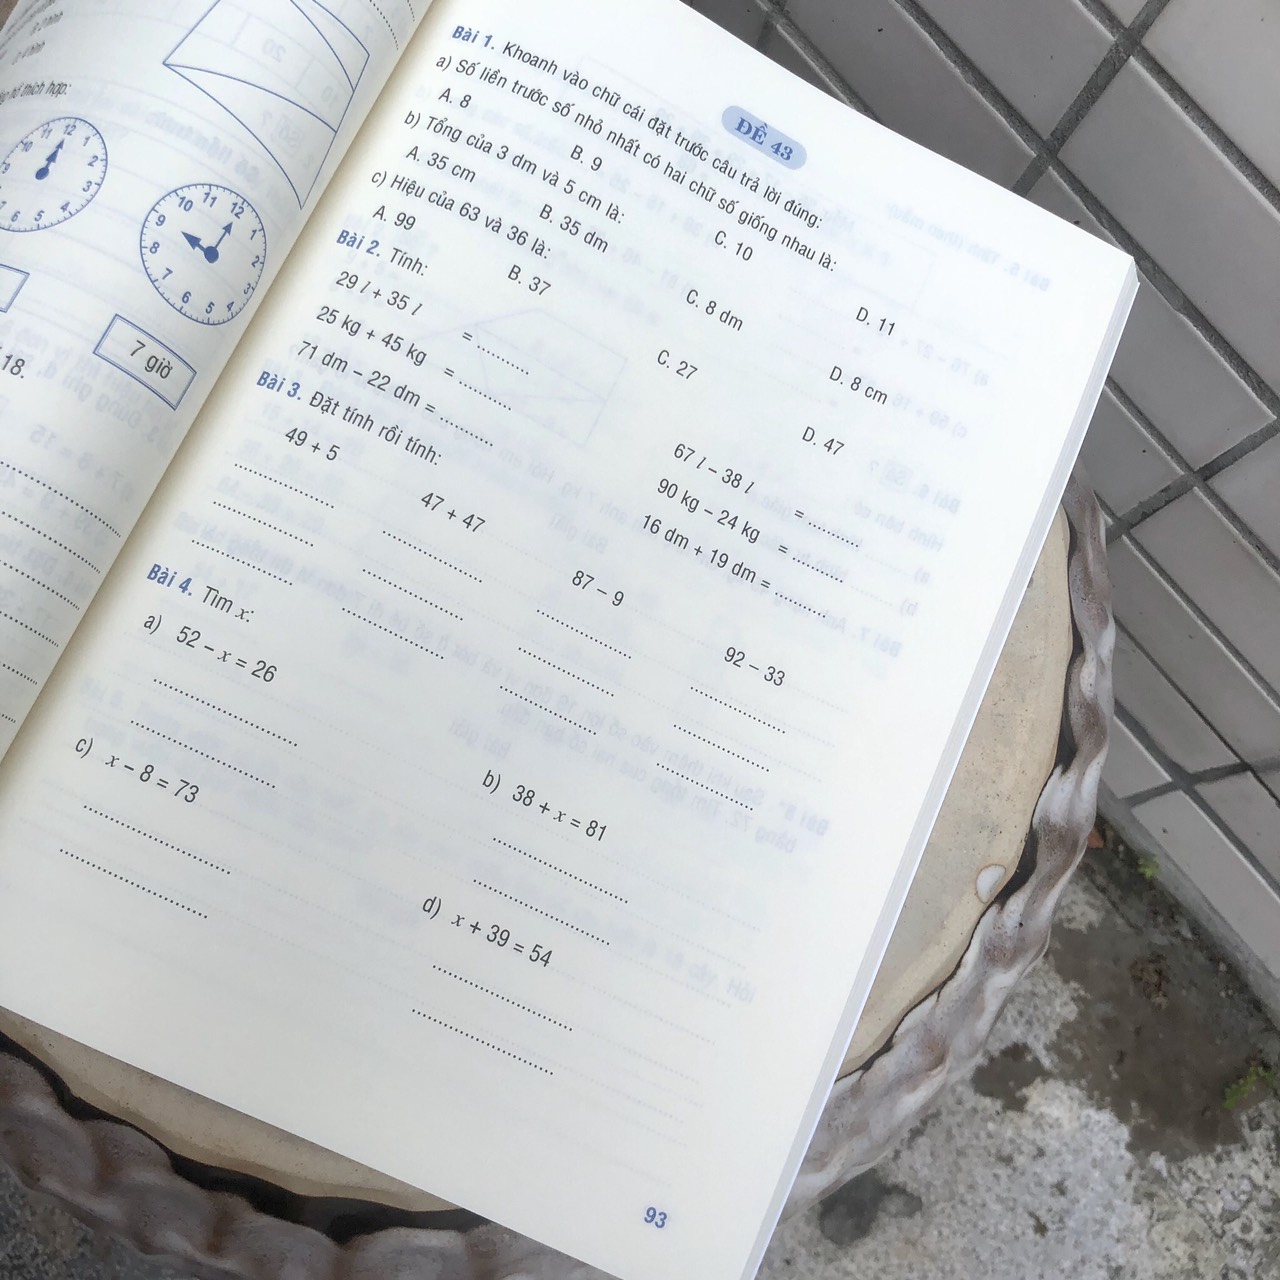 ĐỀ 43
Bài 1. Khoanh vào chữ cái đặt trước câu trả lời đúng:
a) Số liền trước số nhỏ nhất có hai chữ số giống nhau là:
A. 8 B. 9 C. 10 D. 11
b) Tổng của 3 dm và 5 cm là:
A. 35 cm B. 35 dm C. 8 dm D. 8 cm
c) Hiệu của 63 và 36 là:
A. 99 B. 37 C. 27 D. 47
Bài 2. Tính:
29 l + 35 l = .......... 67 l – 38 l = ..........
25 kg + 45 kg = .......... 90 kg – 24 kg = ..........
71 dm – 22 dm = .......... 16 dm + 19 dm = ..........
Bài 3. Đặt tính rồi tính:
49 + 5 47 + 47 87 – 9 92 – 33
Bài 4. Tìm x:
a) 52 – x = 26 b) 38 + x = 81
c) x – 8 = 73 d) x + 39 = 54
93
hồ thích hợp:
12 1 2 3 4 5 6 7 9 11
12 1 2 3 4 5 6 7 8 9 10 11
7 giờ
18.